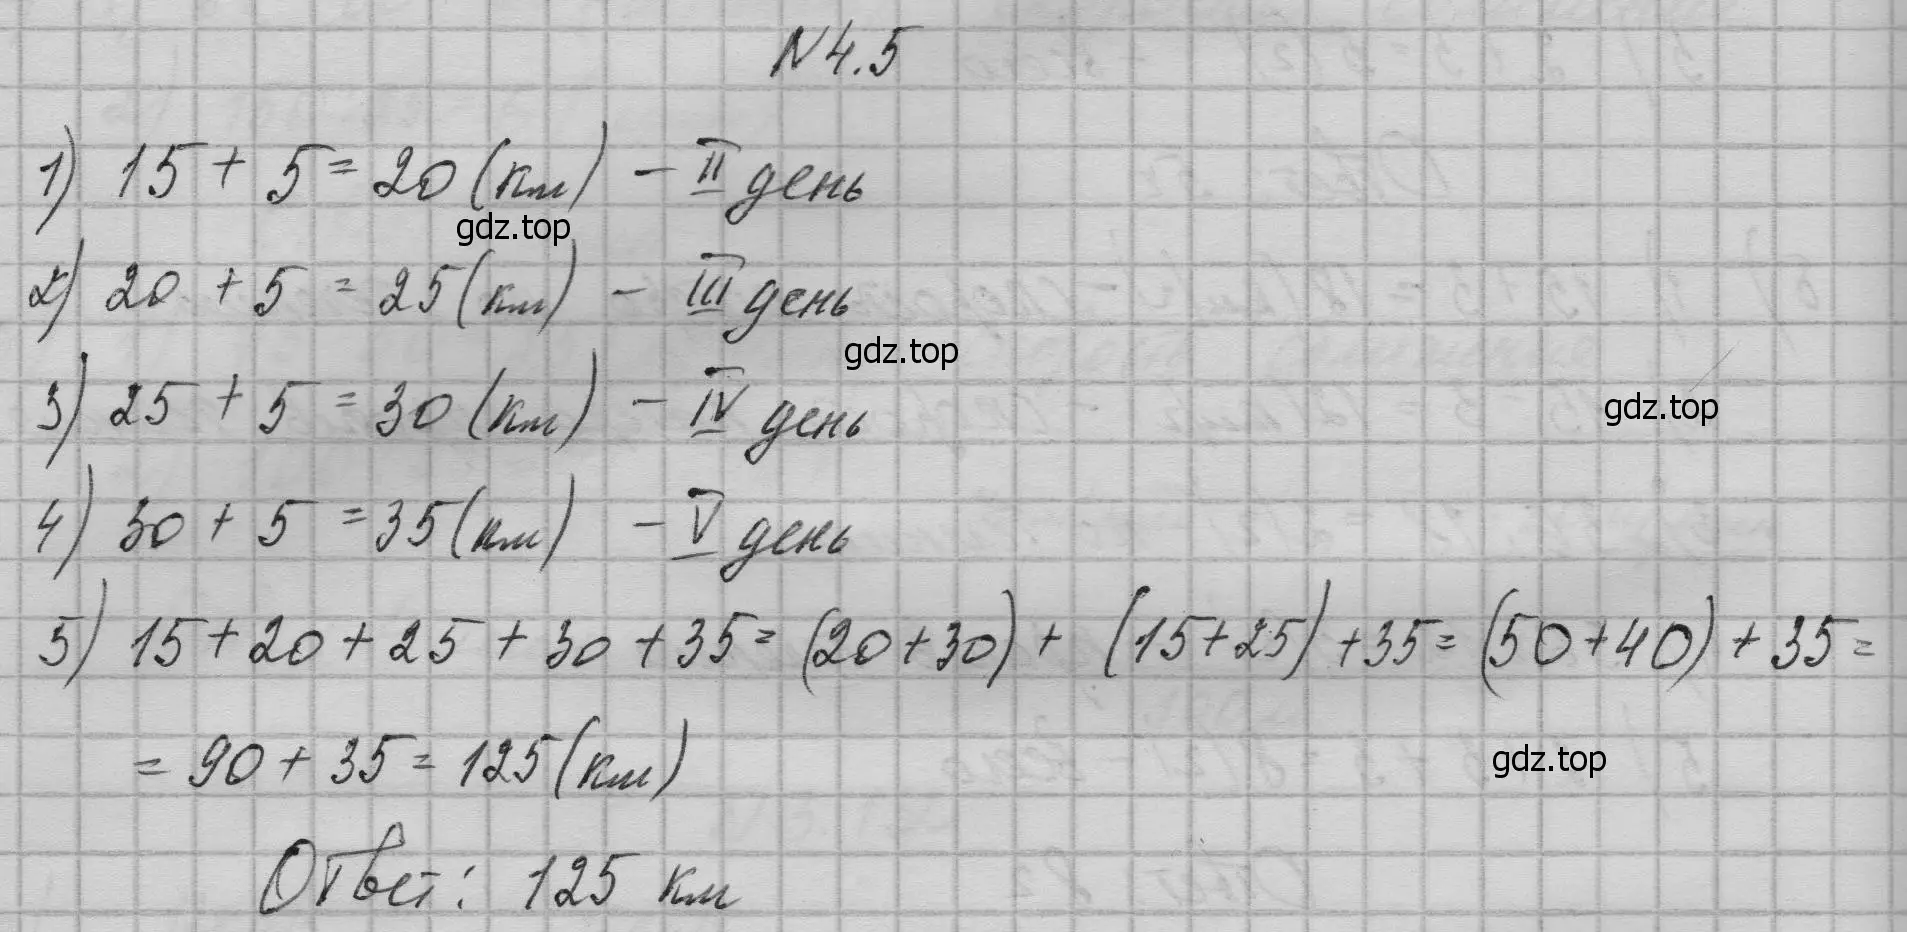 N 4.5
1) 15 + 5 = 20 (км) - II день
gdz.top
2) 20 + 5 = 25 (км) - III день
gdz.top
3) 25 + 5 = 30 (км) - IV день
gdz.top
4) 30 + 5 = 35 (км) - V день
5) 15 + 20 + 25 + 30 + 35 = (20 + 30) + (15 + 25) + 35 = (50 + 40) + 35 =
= 90 + 35 = 125 (км)
gdz.top
Ответ: 125 км